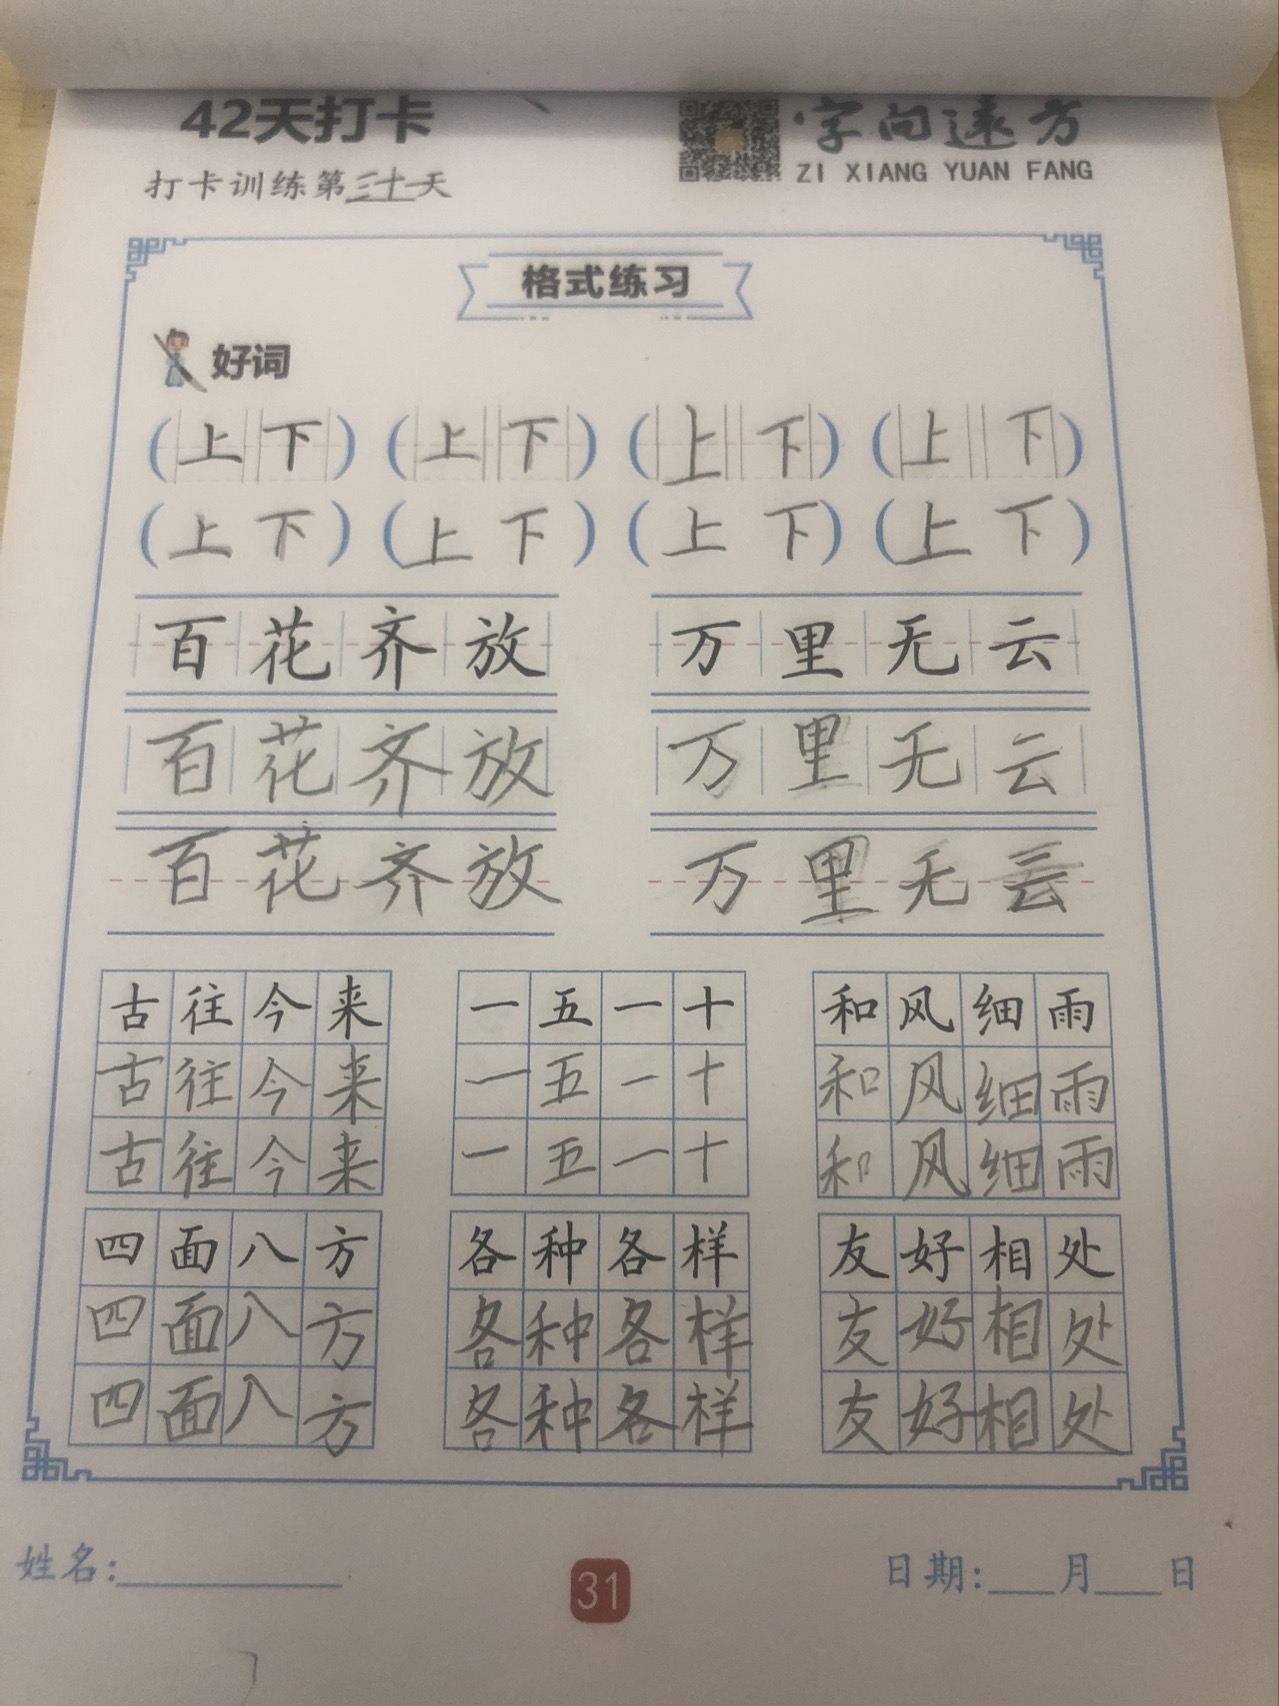 42天打卡
字向远方
ZI XIANG YUAN FANG
打卡训练第三十一天
格式练习
好词
(上下) (上下) (上下) (上下)
(上下) (上下) (上下) (上下)
百花齐放 万里无云
百花齐放 万里无云
百花齐放 万里无云
古往今来 一五一十 和风细雨
古往今来 一五一十 和风细雨
古往今来 一五一十 和风细雨
四面八方 各种各样 友好相处
四面八方 各种各样 友好相处
四面八方 各种各样 友好相处
姓名:
31
日期:___月___日